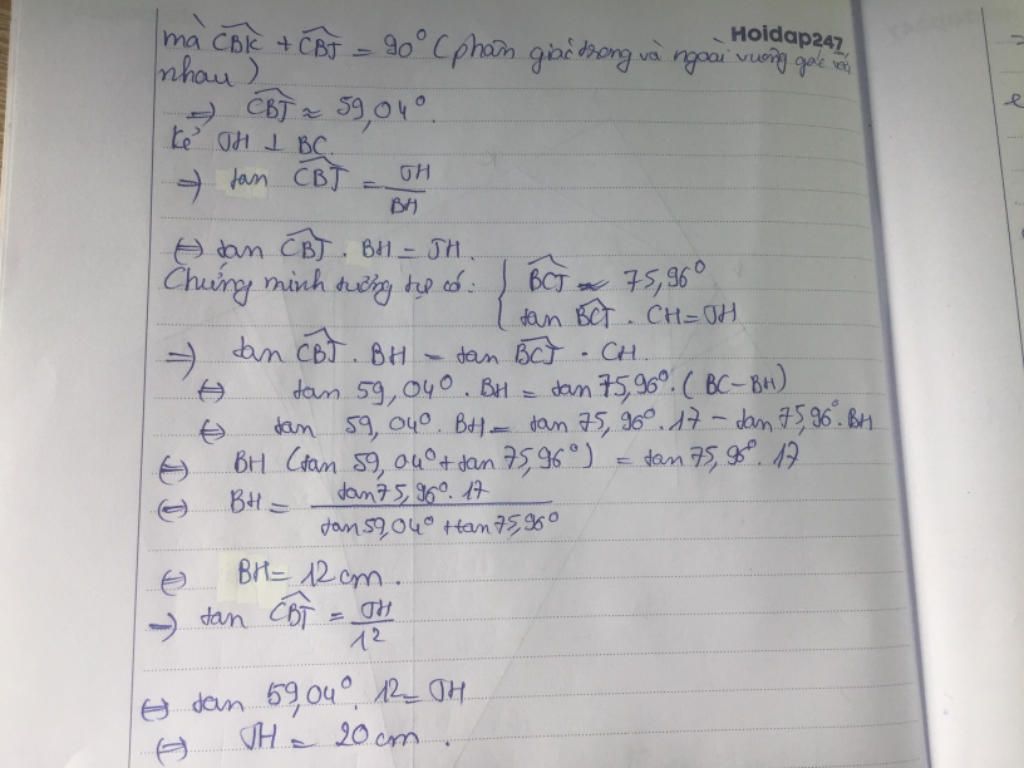 Hoidap247
mà CBK̂ + CBĴ = 90° (phân giác trong và ngoài vuông góc với
nhau)
=> CBĴ ≈ 59,04°.
Kẻ JH ⊥ BC.
=> tan CBĴ = JH/BH
<=> tan CBĴ . BH = JH.
Chứng minh tương tự có: { BCĴ ≈ 75,96°
tan BCĴ . CH = JH
=> tan CBĴ . BH = tan BCĴ . CH.
<=> tan 59,04° . BH = tan 75,96° . (BC - BH)
<=> tan 59,04° . BH = tan 75,96° . 17 - tan 75,96° . BH
<=> BH (tan 59,04° + tan 75,96°) = tan 75,96° . 17
<=> BH = tan 75,96° . 17 / tan 59,04° + tan 75,96°
<=> BH = 12 cm.
=> tan CBĴ = JH/12
<=> tan 59,04° . 12 = JH
<=> JH = 20 cm.